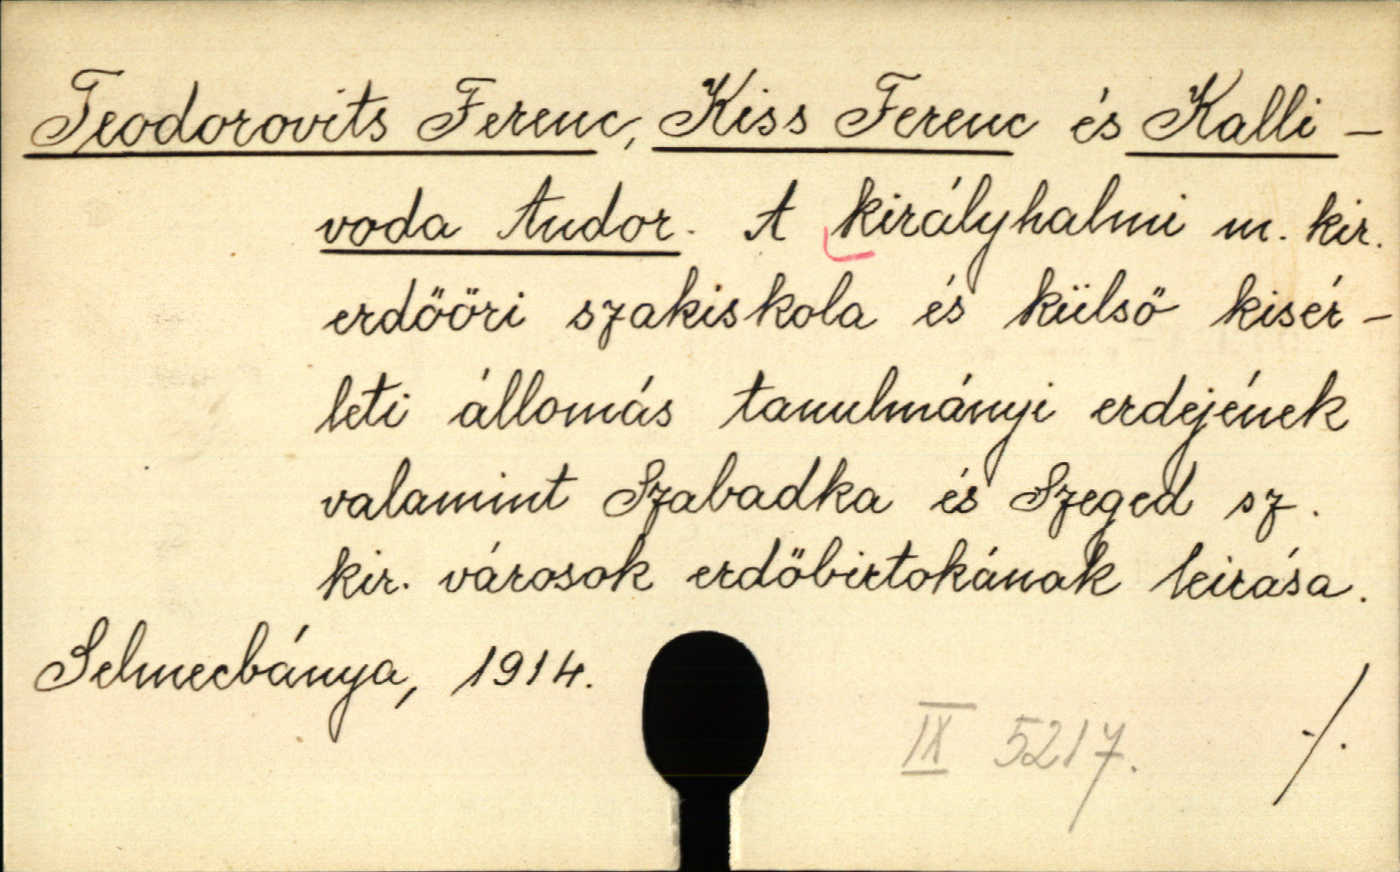 Teodorovits Ferenc, Kiss Ferenc és Kalli-
voda Andor. A királyhalmi m. kir.
erdőőri szakiskola és külső kisér-
leti állomás tanulmányi erdejének
valamint Szabadka és Szeged sz.
kir. városok erdőbirtokának leirása.
Selmecbánya, 1914.
IX 5217. ./.